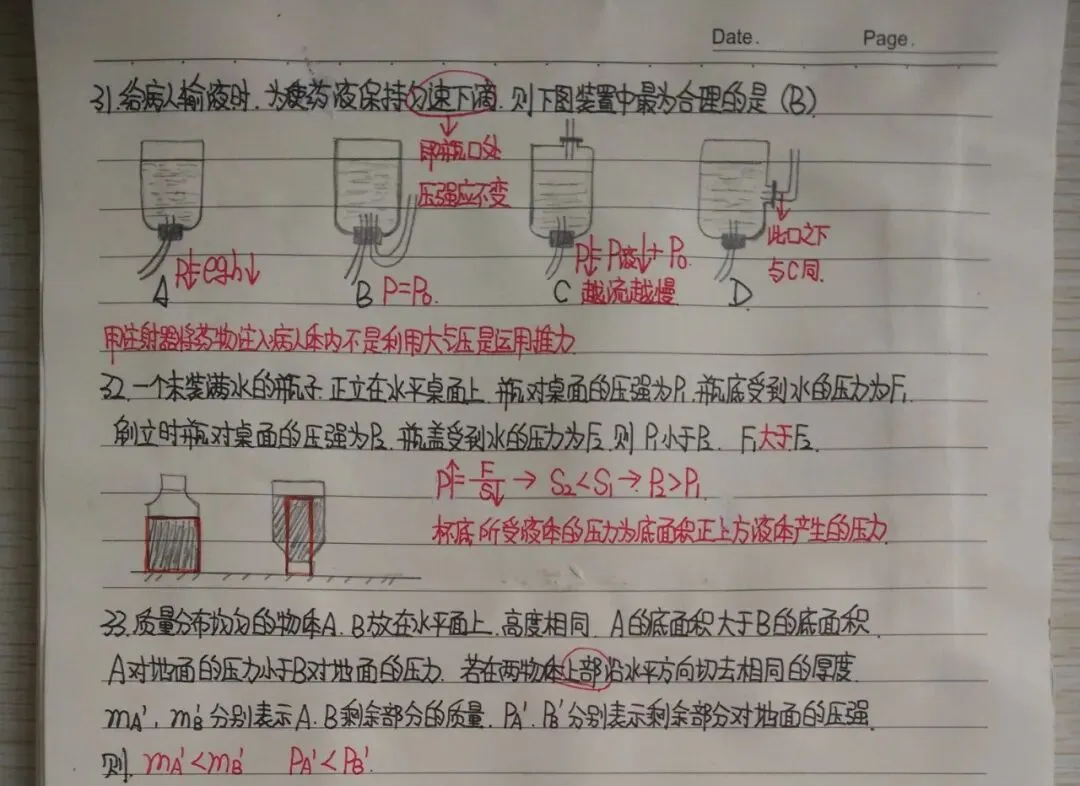 Date. Page.
31.给病人输液时.为使药液保持匀速下滴.则下图装置中最为合理的是(B)
即瓶口处
压强应不变
此口之下
与C同.
A P=ρgh↓
B P=P₀.
C P↓=P液↓+P₀
越流越慢
D
用注射器将药物注入病人体内不是利用大气压是运用推力
32.一个未装满水的瓶子.正立在水平桌面上.瓶对桌面的压强为P₁.瓶底受到水的压力为F₁.
倒立时瓶对桌面的压强为P₂.瓶盖受到水的压力为F₂.则P₁小于P₂. F₁大于F₂.
P↑=F/S↓→S₂<S₁→P₂>P₁
杯底所受液体的压力为底面积正上方液体产生的压力
33.质量分布均匀的物体A.B放在水平面上.高度相同.A的底面积大于B的底面积.
A对地面的压力小于B对地面的压力.若在两物体上部沿水平方向切去相同的厚度.
mA′.mB′分别表示A.B剩余部分的质量.PA′.PB′分别表示剩余部分对地面的压强.
则.mA′<mB′ PA′<PB′.